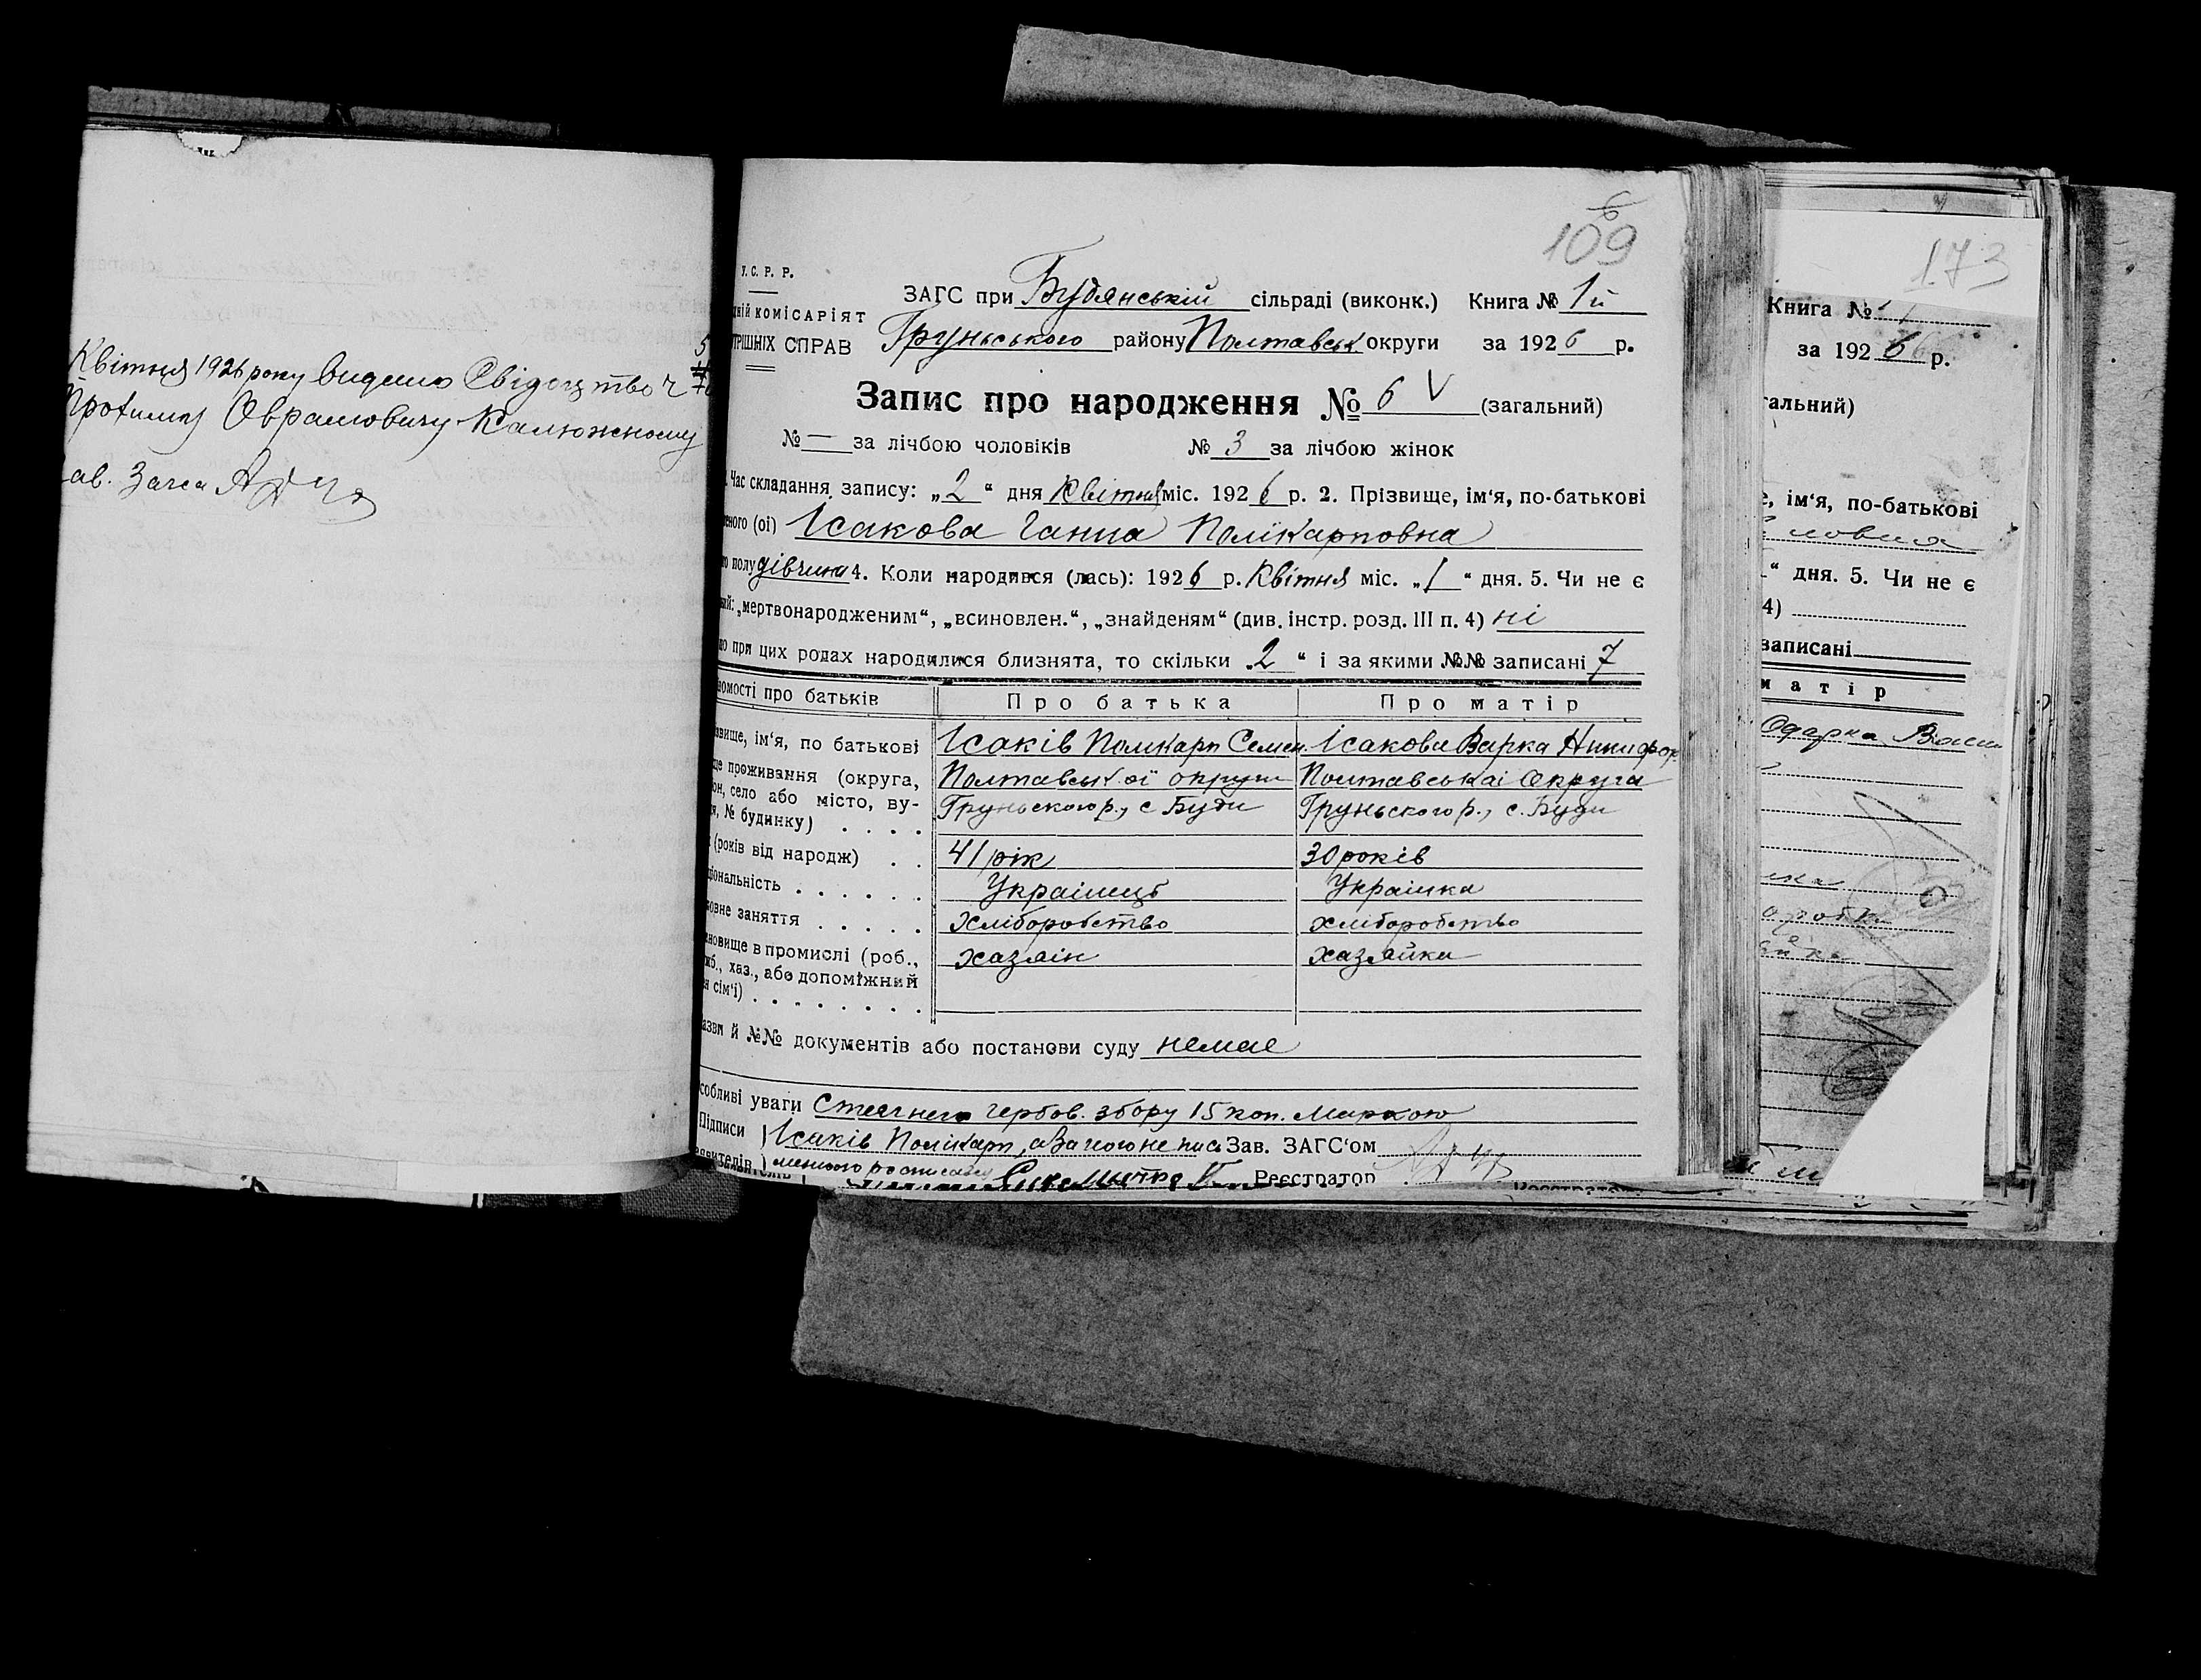 Квітня 1926 року видано Свідоцтво Ч 5
Овраамовичу Калюжному
ав. Загса
6
109
У. С. Р. Р.
ЗАГС при Будянській сільраді (виконк.) Книга № 1й
ній КОМІСАРІЯТ
ТРІШНІХ СПРАВ Груньського району Полтавськ. округи за 1926 р.
Запис про народження № 6 V (загальний)
№ — за лічбою чоловіків № 3 за лічбою жінок
Час складання запису: „2“ дня Квітня міс. 1926 р. 2. Прізвище, ім‘я, по-батькові
еного (ої) Ісакова Ганна Полікарповна
полу дівчина 4. Коли народився (лась): 1926 р. Квітня міс. „1“ дня. 5. Чи не є
ий: „мертвонародженим“, „всиновлен.“, „знайденям“ (див. інстр. розд. III п. 4) ні
що при цих родах народилися близнята, то скільки „2“ і за якими №№ записані 7
омості про батьків Про батька Про матір
звище, ім‘я, по батькові Ісаків Полікарп Семен. Ісакова Варка Никифор.
це проживання (округа, Полтавської округи Полтавськаі Округа
он, село або місто, ву- Груньского р., с Буди Груньского р., с. Буди
я, № будинку) . . . .
(років від народж) . . 41 рік 30 років
ціональність . . . . . . Українець Українка
овне заняття . . . . . Хліборобство хліборобство
новище в промислі (роб., хазяін хазяйка
жб., хаз., або допоміжний
я сім‘ї) . . . . . . . .
азви й №№ документів або постанови суду немае
собливі уваги Стягнено гербов. збору 15 коп. Маркою
Підписи Ісаків Полікарп, а за його не пись Зав. ЗАГС‘ом
явителів менного росписавсь Реєстратор
173
Книга № 1
за 1926 р.
гальний)
е, ім‘я, по-батькові
ловна
“ дня. 5. Чи не є
4)
записані
матір
Одарка Васил